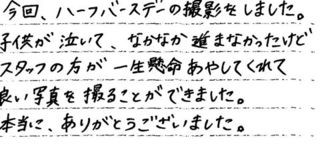 今回、ハーフバースデーの撮影をしました。
子供が泣いて、なかなか進まなかったけど
スタッフの方が一生懸命あやしてくれて
良い写真を撮ることができました。
本当に、ありがとうございました。